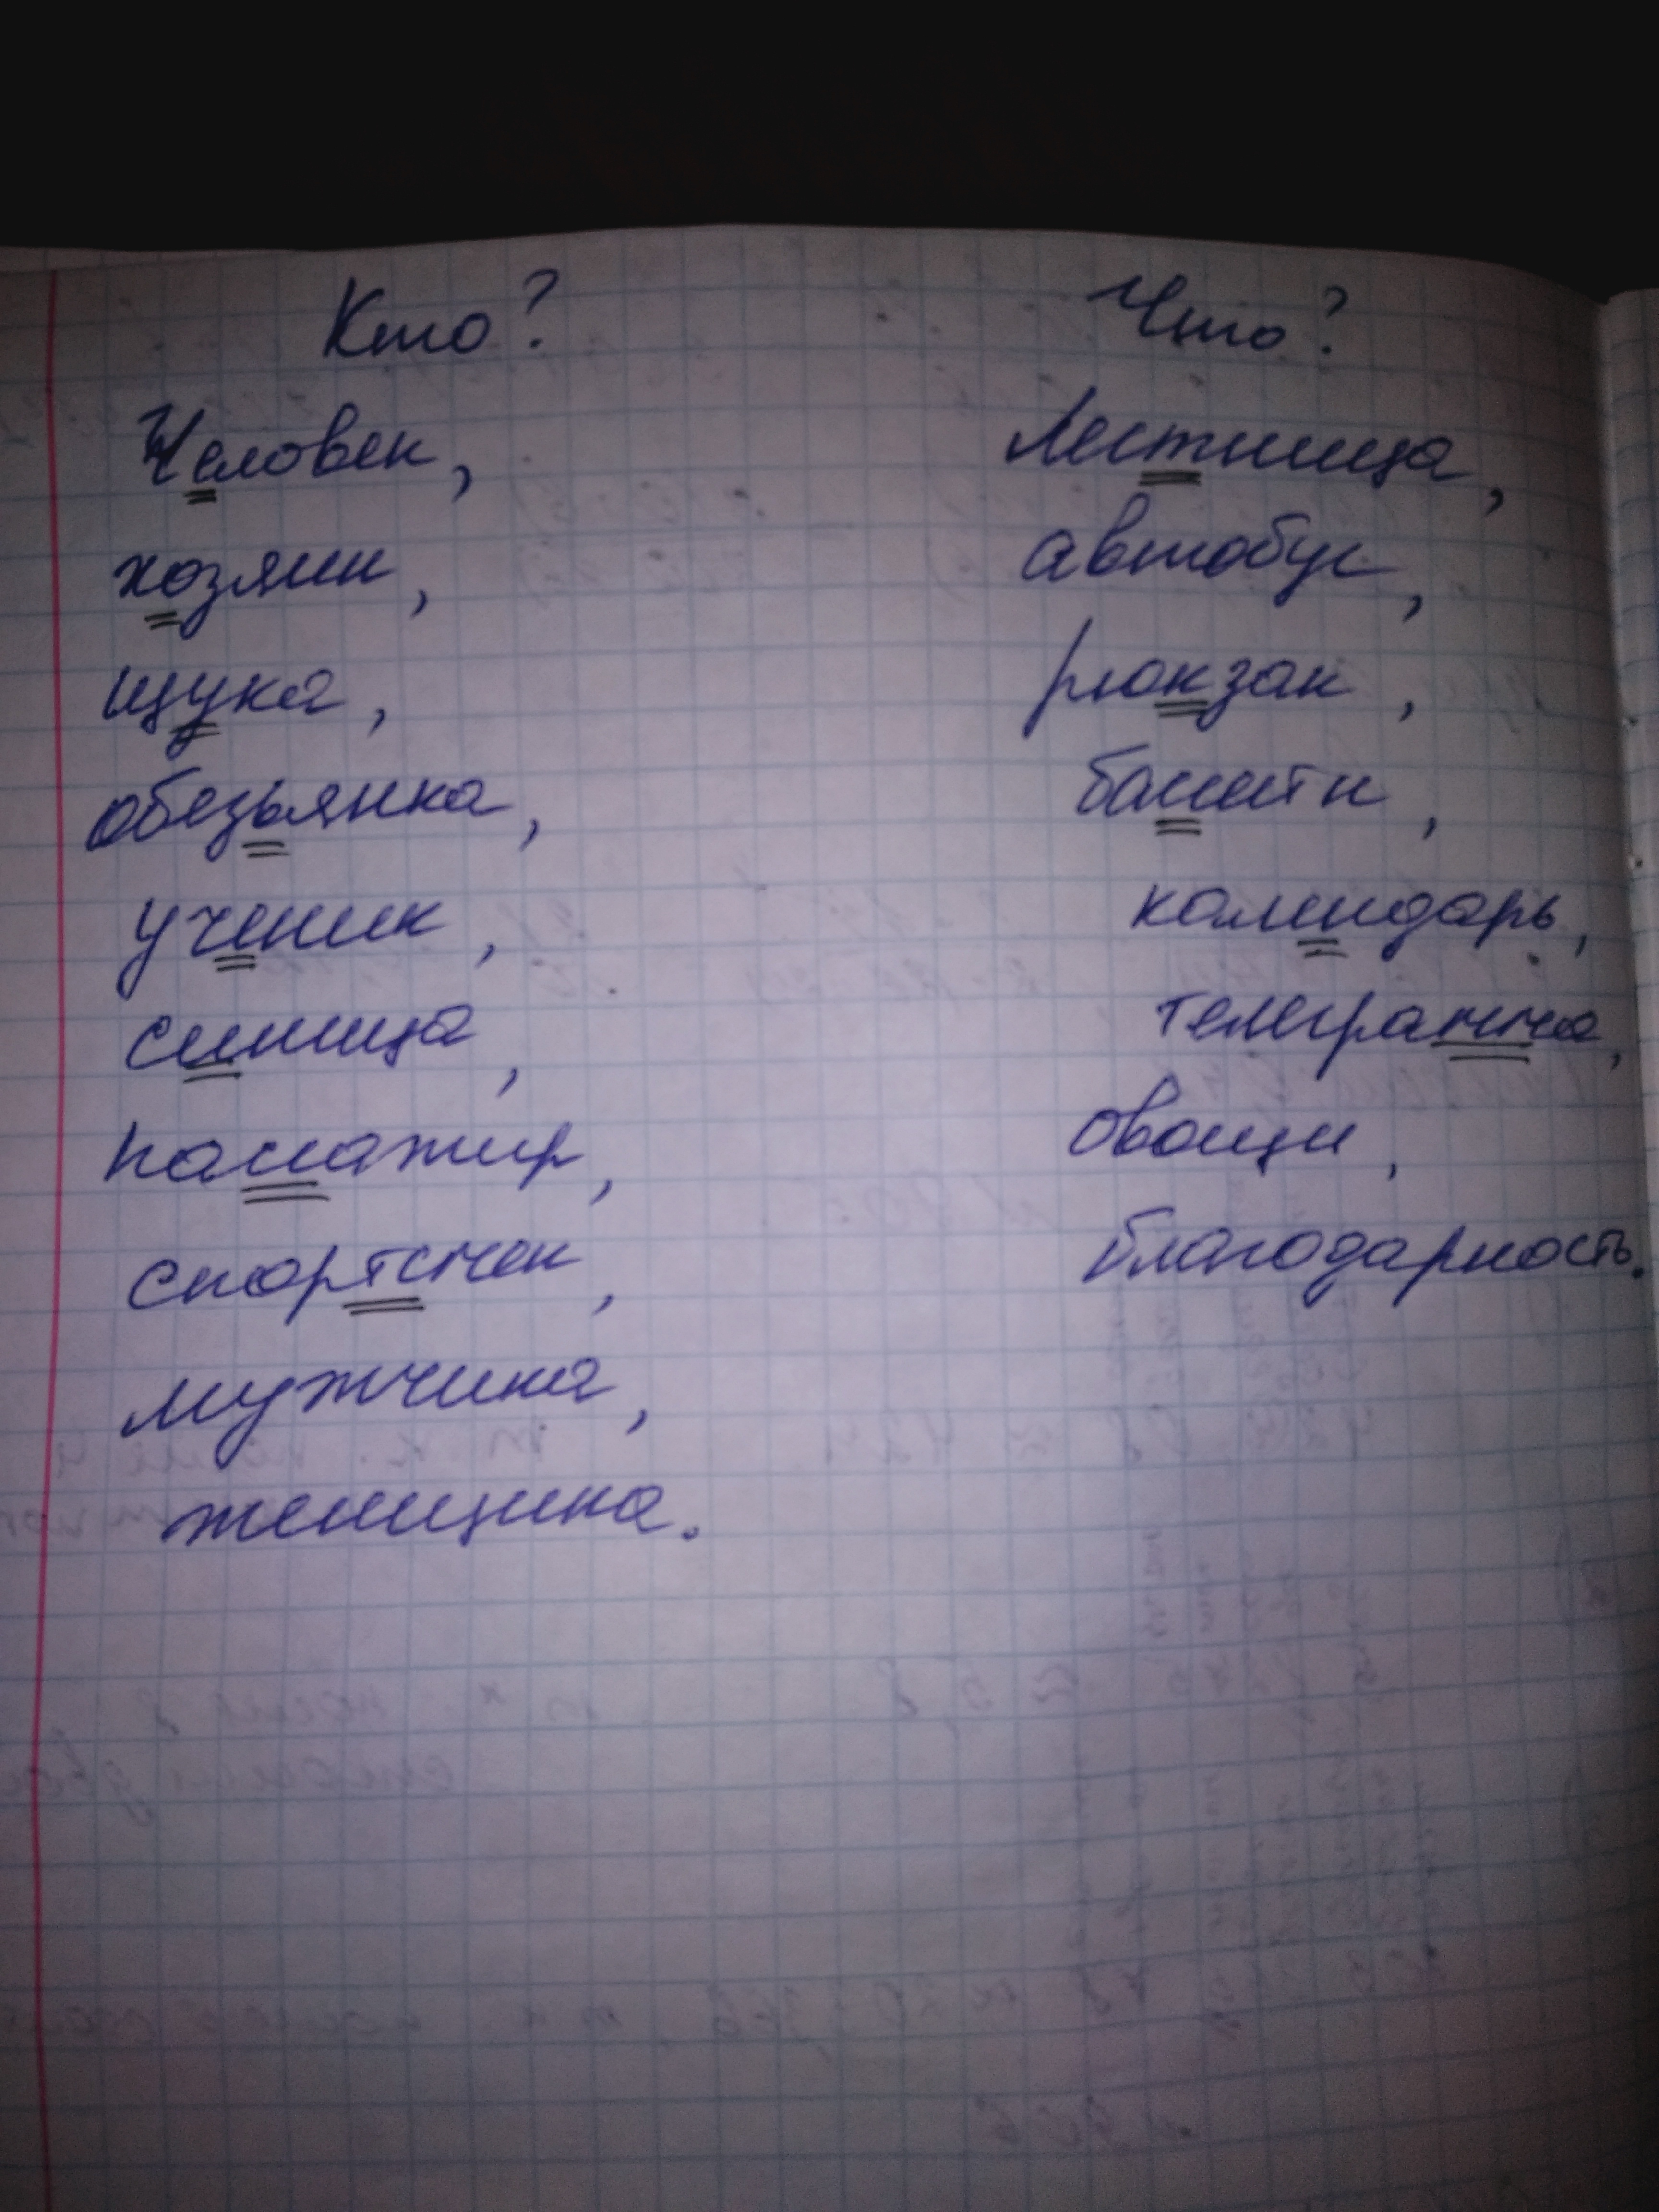 Кто? Что?
Человек, Лестница,
хозяин, автобус,
щука, рюкзак,
обезьянка, башти,
ученик, калиндарь,
синица, телеграмма,
пассажир, овощи,
спортсмен, благодарность.
мужчина,
женщина.